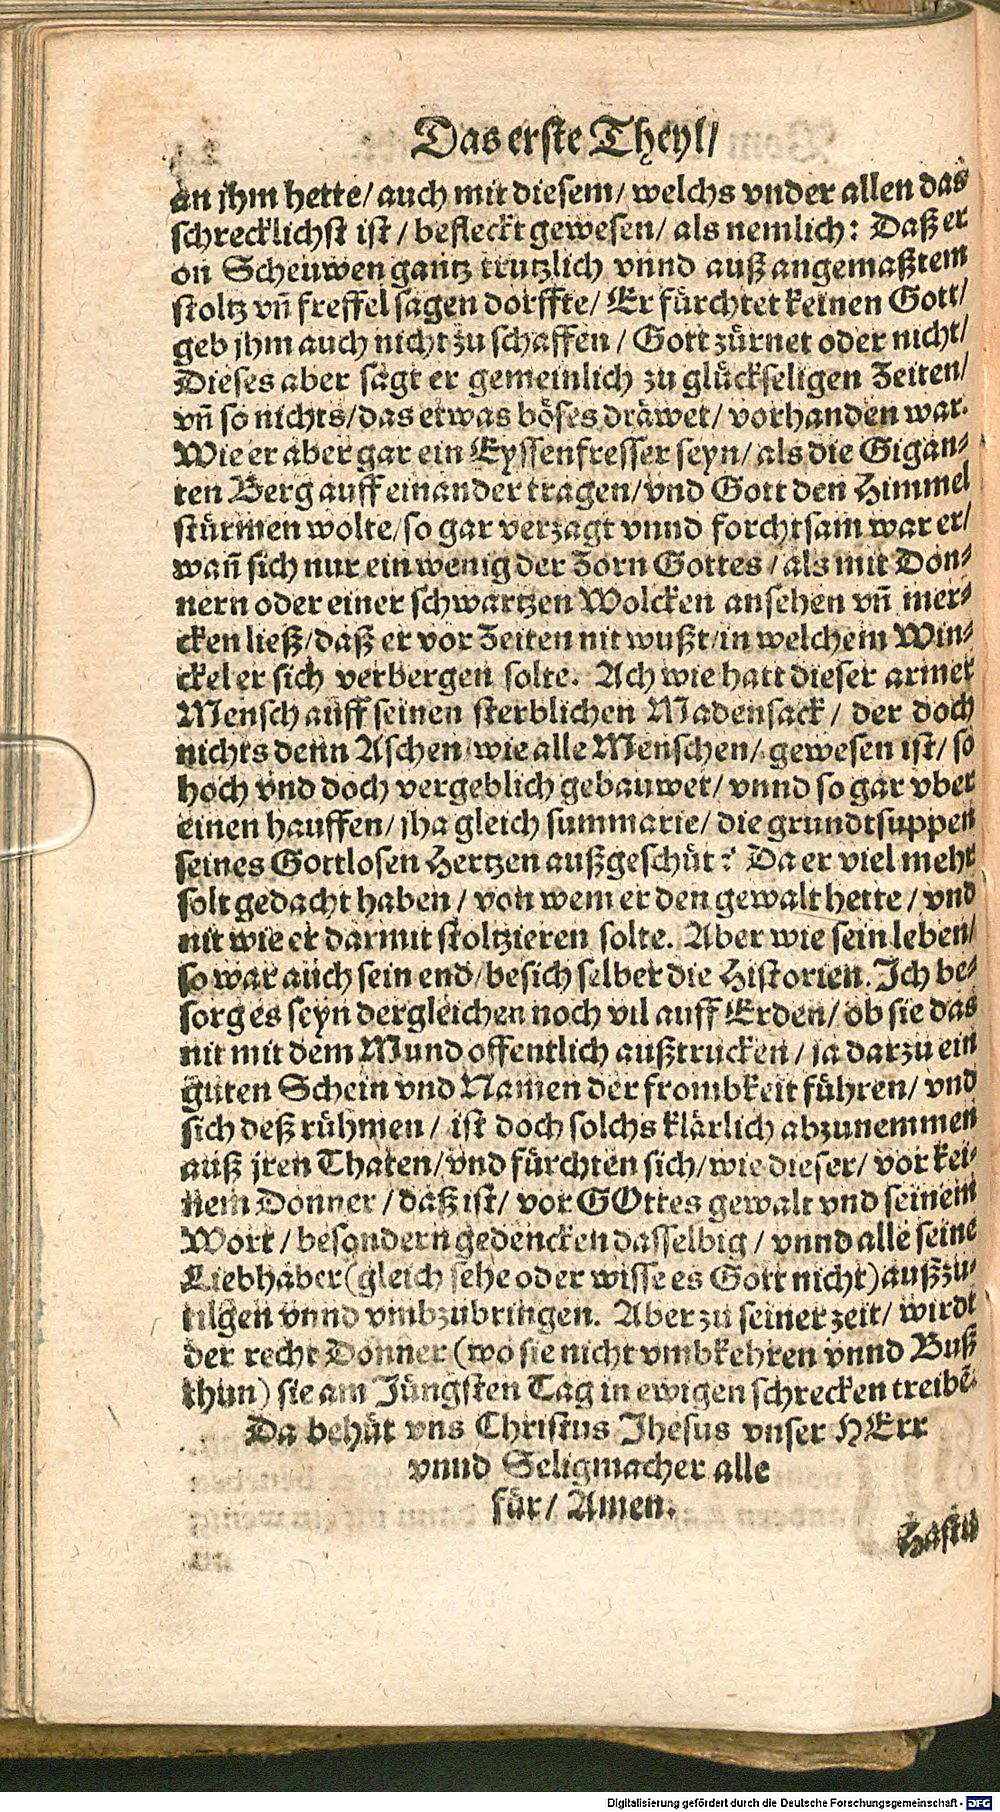 Das erste Theyl/
an jhm hette/ auch mit diesem/ welchs vnder allen das
schrecklichst ist/ befleckt gewesen/ als nemlich: Daß er
on Scheuwen gantz trutzlich vnnd auß angemaßtem
stoltz vn̄ freffel sagen dorffte/ Er fürchtet keinen Gott/
geb jhm auch nicht zu schaffen/ Gott zürnet oder nicht/
Dieses aber sagt er gemeinlich zu glückseligen Zeiten/
vn̄ so nichts/ das etwas böses dräwet/ vorhanden war.
Wie er aber gar ein Eyssenfresser seyn/ als die Gigan-
ten Berg auff einander tragen/ vnd Gott den Himmel
stürmen wolte/ so gar verzagt vnnd forchtsam war er/
wan̄ sich nur ein wenig der Zorn Gottes/ als mit Don-
nern oder einer schwartzen Wolcken ansehen vn̄ mer-
cken ließ/ daß er vor Zeiten nit wußt/ in welchem Win-
ckel er sich verbergen solte. Ach wie hatt dieser armer
Mensch auff seinen sterblichen Madensack/ der doch
nichts denn Aschen wie alle Menschen/ gewesen ist/ so
hoch vnd doch vergeblich gebauwet/ vnnd so gar vber
einen hauffen/ jha gleich summarie/ die grundtsuppen
seines Gottlosen Hertzen außgeschüt? Da er viel mehr
solt gedacht haben/ von wem er den gewalt hette/ vnd
nit wie er darmit stoltzieren solte. Aber wie sein leben/
so war auch sein end/ besich selber die Historien. Ich be-
sorg es seyn dergleichen noch vil auff Erden/ ob sie das
nit mit dem Mund offentlich außtrucken/ ja darzu ein
guten Schein vnd Namen der frombkeit führen/ vnd
sich deß rühmen/ ist doch solchs klärlich abzunemmen
auß jren Thaten/ vnd fürchten sich/ wie dieser/ vor kei-
nem Donner/ daß ist/ vor GOttes gewalt vnd seinem
Wort/ besondern gedencken dasselbig/ vnnd alle seine
Liebhaber (gleich sehe oder wisse es Gott nicht) außzu-
tilgen vnnd vmbzubringen. Aber zu seiner zeit/ wirdt
der recht Donner (wo sie nicht vmbkehren vnnd Buß
thun) sie am Jüngsten Tag in ewigen schrecken treibē.
Da behüt vns Christus Jhesus vnser HErr
vnnd Seligmacher alle
für/ Amen.
Hastu
Digitalisierung gefördert durch die Deutsche Forschungsgemeinschaft - DFG